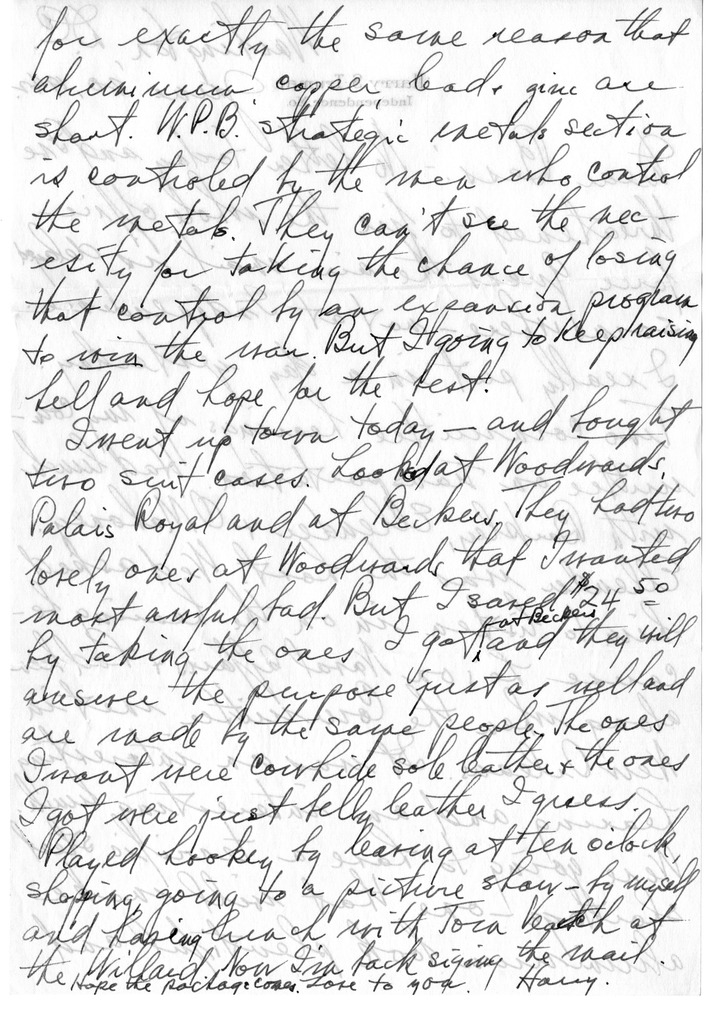 for exactly the same reason that
aluminium copper, lead & zinc are
short. W.P.B. strategic metals section
is controled by the men who control
the metals. They can't see the nec-
esity for taking the chance of losing
that control by an expansion program
to win the war. But I going to keep raising
hell and hope for the best!
I went up town today — and bought
two suit cases. Looked at Woodwards,
Palais Royal and at Beckers. They had two
lovely ones at Woodwards that I wanted
most awful bad. But I saved $24 50
by taking the ones I got at Beckers and they will
answer the purpose just as well and
are made by the same people. The ones
I want were cowhide sole leather & the ones
I got were just belly leather I guess.
Played hookey by leaving at ten oclock,
shoping, going to a picture show – by myself
and having lunch with Tom at
the Willard. Now I'm back signing the mail.
Hope the package comes. Love to you. Harry.